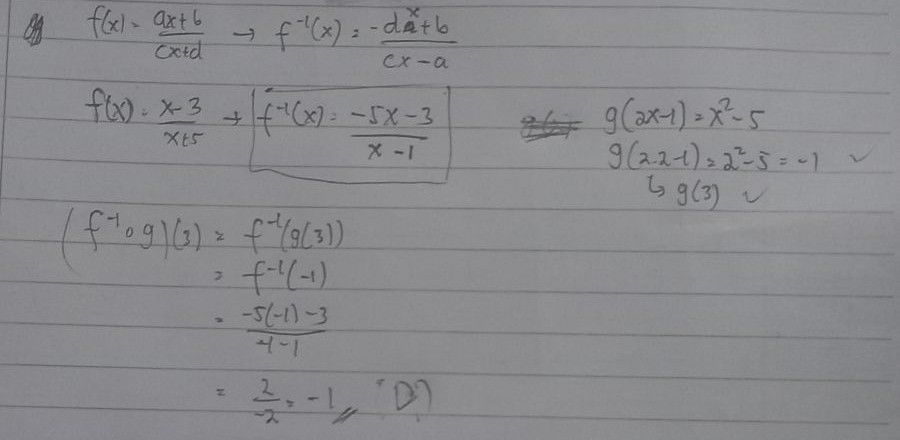 f(x) = ax+b / cx+d → f⁻¹(x) = -dx+b / cx-a
f(x) = x-3 / x+5 → f⁻¹(x) = -5x-3 / x-1
g(2x-1) = x²-5
g(2.2-1) = 2²-5 = -1 ✓
↳ g(3) ✓
(f⁻¹∘g)(3) = f⁻¹(g(3))
= f⁻¹(-1)
= -5(-1)-3 / -1-1
= 2/-2 = -1